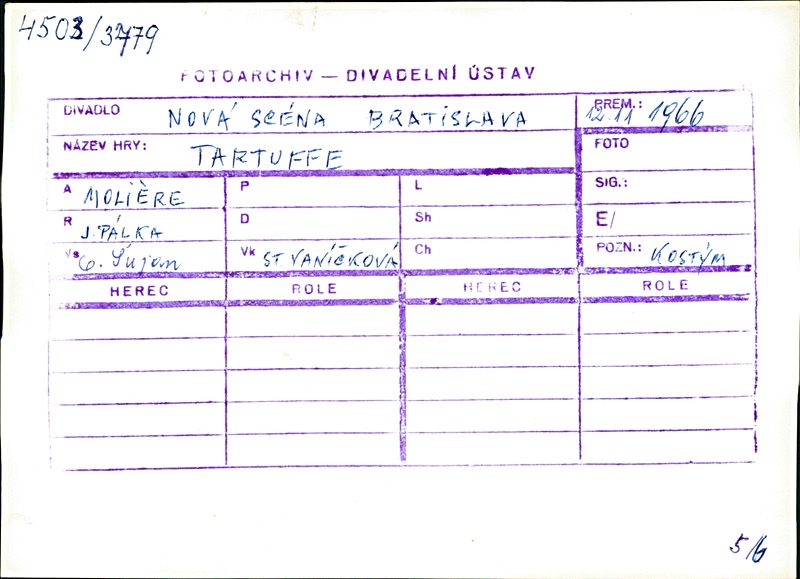 4503/3779
FOTOARCHIV — DIVADELNÍ ÚSTAV
DIVADLO NOVÁ SCÉNA BRATISLAVA PREM.: 12.11 1966
NÁZEV HRY: TARTUFFE FOTO
A MOLIÈRE P L SIG.:
R J. PÁLKA D Sh E/
Vs G. Šujan Vk ST VANÍČKOVÁ Ch POZN.: KOSTÝM
HEREC ROLE HEREC ROLE
5/6